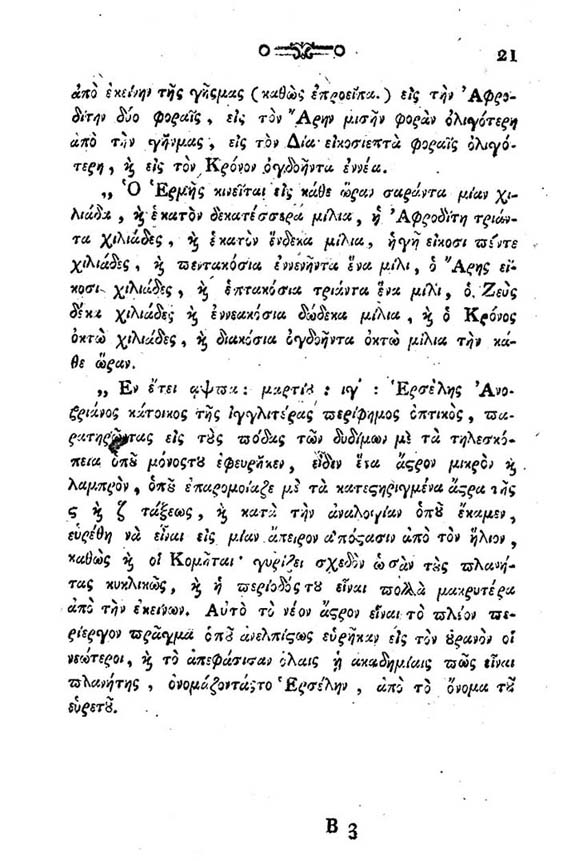 21
ἀπὸ ἐκείνην τῆς γῆσμας (καθὼς ἐπροεῖπα.) εἰς τὴν Ἀφρο-
δίτην δύο φοραῖς, εἰς τὸν Ἄρην μισὴν φορὰν ὀλιγότερη
ἀπὸ τὴν γῆνμας, εἰς τὸν Δία εἰκοσιεπτὰ φοραῖς ὀλιγό-
τερη, ϗ εἰς τὸν Κρόνον ὀγδοῆντα ἐννέα.
„ Ὁ Ἑρμῆς κινεῖται εἰς κάθε ὥραν σαράντα μίαν χι-
λιάδα, ϗ ἑκατὸν δεκατέσσερα μίλια, ἡ Ἀφροδίτη τριάν-
τα χιλιάδες, ϗ ἑκατὸν ἕνδεκα μίλια, ἡγῆ εἴκοσι πέντε
χιλιάδες, ϗ πεντακόσια ἐννενῆντα ἕνα μίλι, ὁ Ἄρης εἴ-
κοσι χιλιάδες, ϗ ἑπτακόσια τριάντα ἕνα μίλι, ὁ Ζεὺς
δέκα χιλιάδες ϗ ἐννεακόσια δώδεκα μίλια, ϗ ὁ Κρόνος
ὀκτὼ χιλιάδες, ϗ διακόσια ὀγδοῆντα ὀκτὼ μίλια τὴν κά-
θε ὥραν.
„ Ἐν ἔτει αψπα: μαρτίȣ: ιγ΄: Ἑρσέλης Ἀνο-
βριάνος κάτοικος τῆς ἰγγλιτέρας περίφημος ὀπτικὸς, πα-
ρατηρῶντας εἰς τȣ̀ς πόδας τῶν δυδίμων μὲ τὰ τηλεσκό-
πεια ὁπȣ̃ μόνοςτȣ ἐφευρῆκεν, εἶδεν ἕνα ἄϛρον μικρὸν ϗ
λαμπρὸν, ὁπȣ̃ ἐπαρομοίαζε μὲ τὰ κατεϛηριγμένα ἄϛρα τῆς
ϛ ϗ ζ τάξεως, ϗ κατὰ τὴν ἀναλογίαν ὁπȣ̃ ἔκαμεν,
εὑρέθη νὰ εἶναι εἰς μίαν ἄπειρον ἀπόϛασιν ἀπὸ τὸν ἥλιον,
καθὼς ϗ οἱ Κομῆται· γυρίζει σχεδὸν ὡσὰν τȣ̀ς πλανή-
τας κυκλικῶς, ϗ ἡ περίοδός τȣ εἶναι πολλὰ μακρυτέρα
ἀπὸ τὴν ἐκείνων. Αὐτὸ τὸ νέον ἄϛρον εἶναι τὸ πλέον πε-
ρίεργον πρᾶγμα ὁπȣ̃ ἀνελπίϛως εὑρῆκαν εἰς τὸν ȣ̓ρανὸν οἱ
νεώτεροι, ϗ τὸ ἀπεφάσισαν ὅλαις ἡ ἀκαδημίαις πῶς εἶναι
πλανήτης, ὀνομάζοντάςτο Ἑρσέλην, ἀπὸ τὸ ὄνομα τȣ̃
εὑρετȣ̃.
Β 3